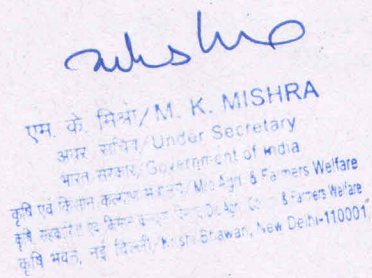 एम. के. मिश्रा/M. K. MISHRA
अवर सचिव/Under Secretary
भारत सरकार/Government of India
कृषि एवं किसान कल्याण मंत्रालय/M/o Agri. & Farmers Welfare
कृषि, सहकारिता एवं किसान कल्याण विभाग/D/o Agri. Coop. & Farmers Welfare
कृषि भवन, नई दिल्ली/Krishi Bhawan, New Delhi-110001